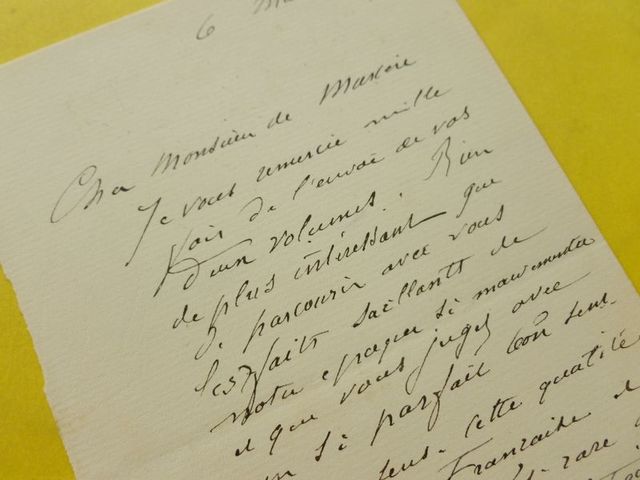 6 Ma
Cher Monsieur de
Je vous remercie mille
fois de l'envoi de vos
deux volumes. Rien
de plus intéressant que
de parcourir avec vous
les faits saillants de
notre époque si mouvementée
et que vous jugez avec
un si parfait bon sens.
sens. cette qualité
Française
rare